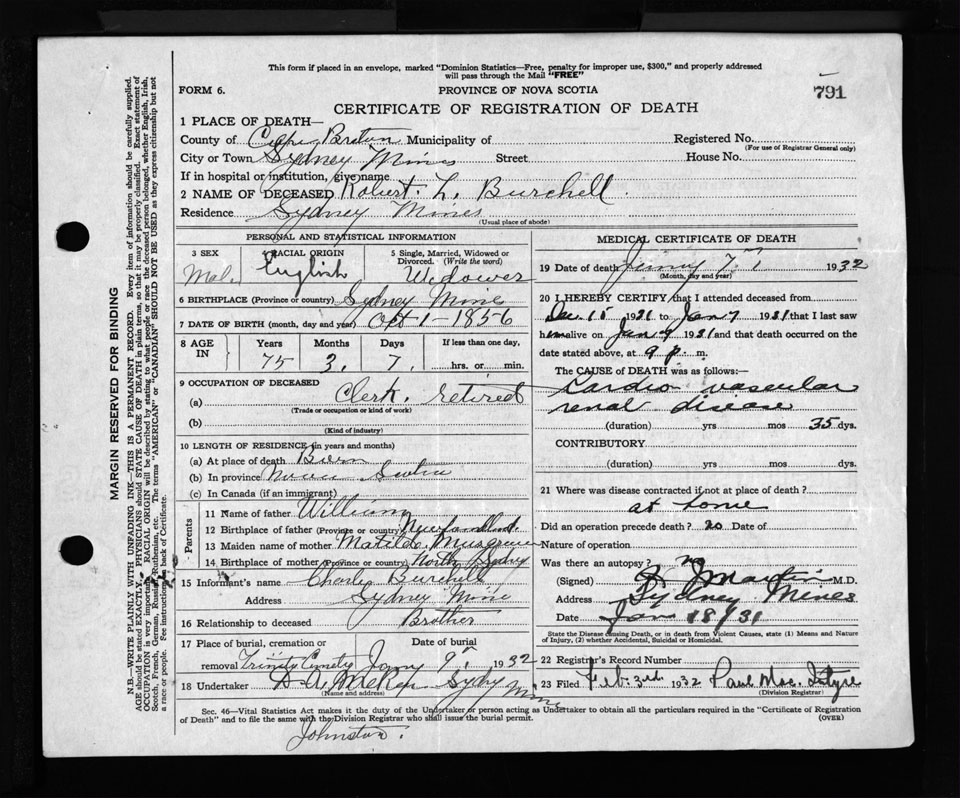 This form if placed in an envelope, marked "Dominion Statistics—Free, penalty for improper use, $300," and properly addressed
will pass through the Mail "FREE"
FORM 6.
PROVINCE OF NOVA SCOTIA
791
CERTIFICATE OF REGISTRATION OF DEATH
1 PLACE OF DEATH—
County of Cape Breton Municipality of
Registered No.
(For use of Registrar General only)
City or Town Sydney Mines Street House No.
If in hospital or institution, give name
2 NAME OF DECEASED Robert L. Burchell
Residence Sydney Mines
(Usual place of abode)
PERSONAL AND STATISTICAL INFORMATION
3 SEX Male
4 RACIAL ORIGIN English
5 Single, Married, Widowed or Divorced. (Write the word) Widower
6 BIRTHPLACE (Province or country) Sydney Mines
7 DATE OF BIRTH (month, day and year) Oct 1-1856
8 AGE IN Years 75 Months 3. Days 7. If less than one day, hrs. or min.
9 OCCUPATION OF DECEASED
(a) Clerk. retired
(Trade or occupation or kind of work)
(b)
(Kind of industry)
10 LENGTH OF RESIDENCE (in years and months)
(a) At place of death Born
(b) In province Nova Scotia
(c) In Canada (if an immigrant)
Parents
11 Name of father William
12 Birthplace of father (Province or country) Newfoundland.
13 Maiden name of mother Matilda Musgrave
14 Birthplace of mother (Province or country) North Sydney
15 Informant's name Charles Burchell
Address Sydney Mine
16 Relationship to deceased Brother
17 Place of burial, cremation or removal Trinity Cemety
Date of burial Jany 9th 1932
18 Undertaker D. A. Sydny Mine
(Name and address)
Johnston.
MEDICAL CERTIFICATE OF DEATH
19 Date of death 7 1932
(Month, day and year)
20 I HEREBY CERTIFY that I attended deceased from
Dec 15 1931 to Jan 7 1931 that I last saw
him alive on Jan 7 1931 and that death occurred on the
date stated above, at 9 p. m.
The CAUSE OF DEATH was as follows:
Cardio vascular
renal disease
(duration) yrs mos 35 dys.
CONTRIBUTORY
(duration) yrs mos dys.
21 Where was disease contracted if not at place of death?
at home
Did an operation precede death? no Date of
Nature of operation
Was there an autopsy? no
(Signed) Martin M.D.
Address Sydney Mines
Date Jan 18/31
State the Disease causing Death, or in death from Violent Causes, state (1) Means and Nature
of Injury, (2) whether Accidental, Suicidal or Homicidal.
22 Registrar's Record Number
23 Filed Feb. 3rd 1932 Paul Mac. Intyre
(Division Registrar)
Sec. 46—Vital Statistics Act makes it the duty of the Undertaker or person acting as Undertaker to obtain all the particulars required in the "Certificate of Registration
of Death" and to file the same with the Division Registrar who shall issue the burial permit.
(OVER)
MARGIN RESERVED FOR BINDING
N.B.—WRITE PLAINLY WITH UNFADING INK—THIS IS A PERMANENT RECORD. Every item of information should be carefully supplied.
AGE should be stated EXACTLY. PHYSICIANS should STATE CAUSE OF DEATH in plain terms, so that it may be properly classified. Exact statement of
OCCUPATION is very important. RACIAL ORIGIN will be described by stating to what people or race the deceased person belonged, whether English, Irish,
Scotch, French, German, Russian, Ruthenian, etc. The terms "AMERICAN" or "CANADIAN" SHOULD NOT BE USED as they express citizenship but not
a race or people. See instructions on back of Certificate.